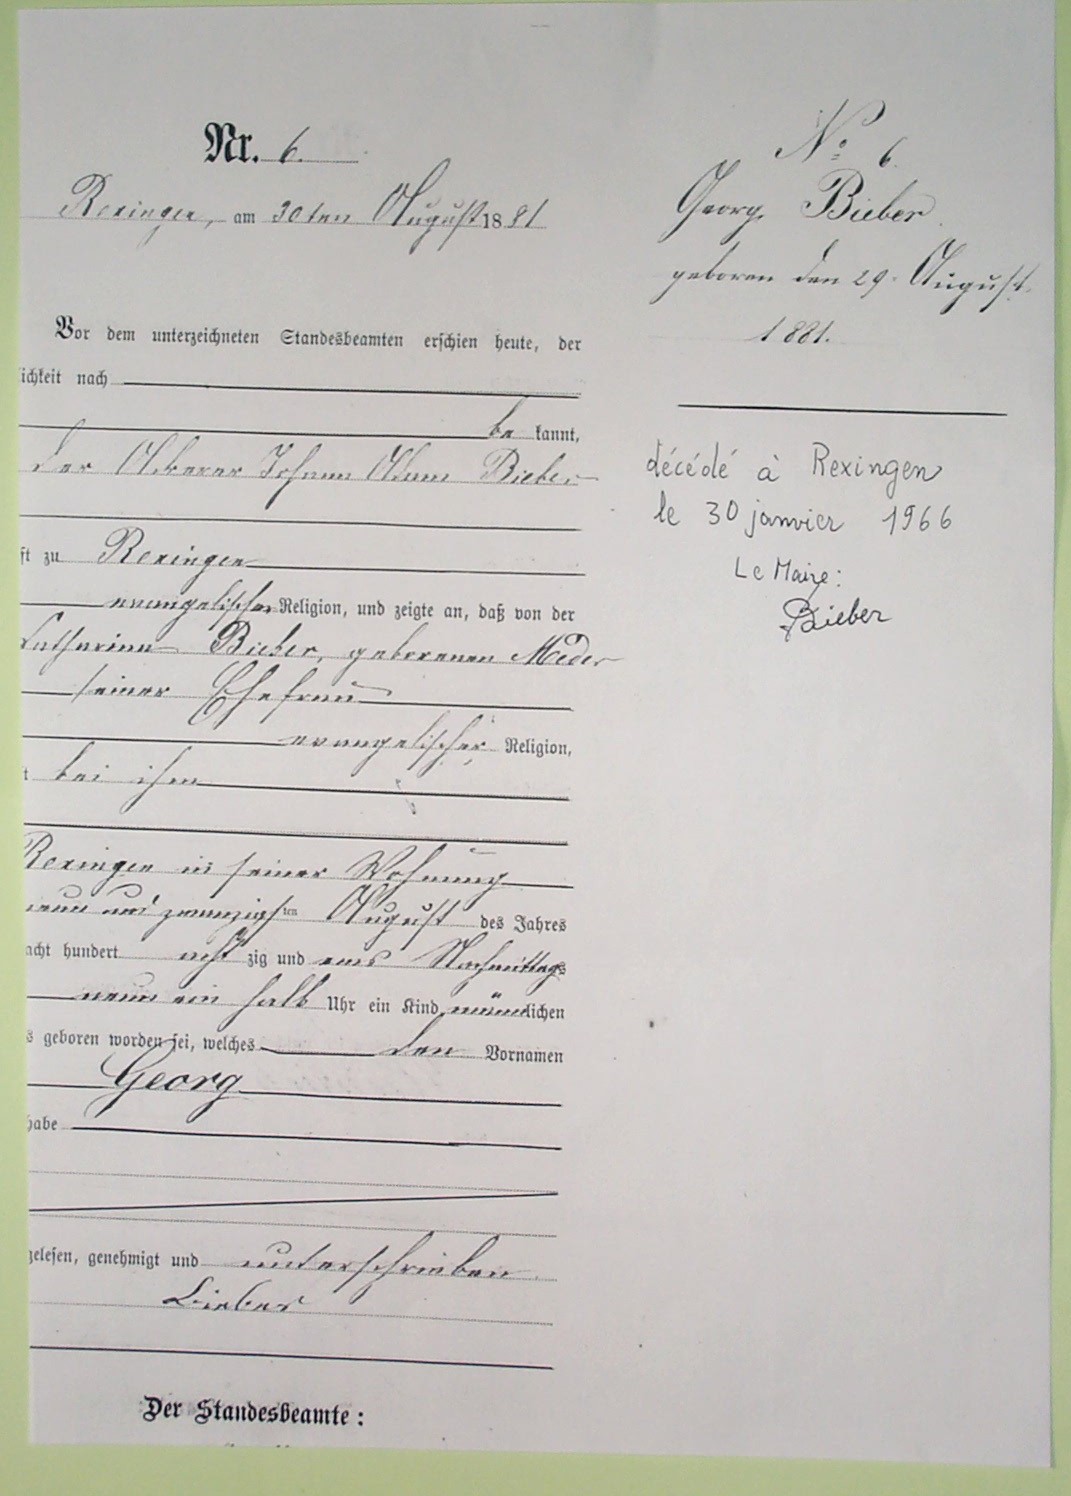 Nr. 6.
Rexingen, am 30ten August 1881
Vor dem unterzeichneten Standesbeamten erschien heute, der
lichkeit nach
be kannt,
der Ackerer Johann Adam Bieber
ft zu Rexingen
evangelischer Religion, und zeigte an, daß von der
Catharina Bieber, geborenen Meder
seiner Ehefrau
evangelischer Religion,
t bei ihm
Rexingen in seiner Wohnung
neun und zwanzigsten August des Jahres
acht hundert achtzig und eins Nachmittags
neun ein halb Uhr ein Kind männlichen
s geboren worden sei, welches den Vornamen
Georg
habe
gelesen, genehmigt und unterschrieben
Bieber
Der Standesbeamte:
No 6.
Georg Bieber
geboren den 29. August
1881.
décédé à Rexingen
le 30 janvier 1966
Le Maire:
Bieber